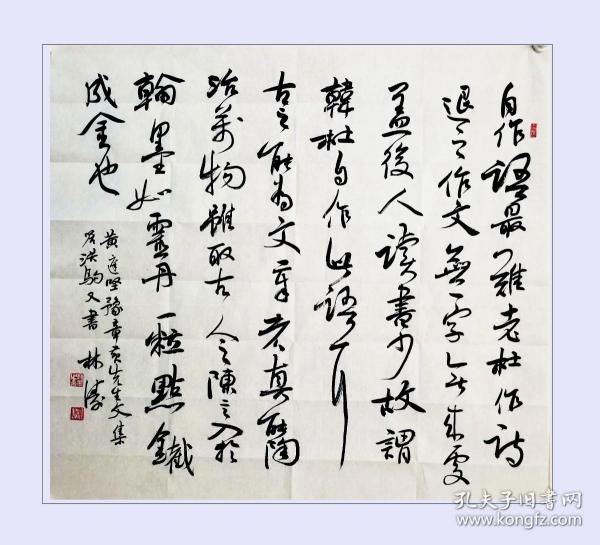 自作語最難老杜作詩
退之作文無一字無來處
蓋後人讀書少故謂
韓杜自作此語耳
古之能為文章者真能陶
冶萬物雖取古人之陳言入於
翰墨如靈丹一粒點鐵
成金也
黃庭堅豫章黃先生文集
答洪駒父書 林濤
孔夫子旧书网
www.kongfz.com